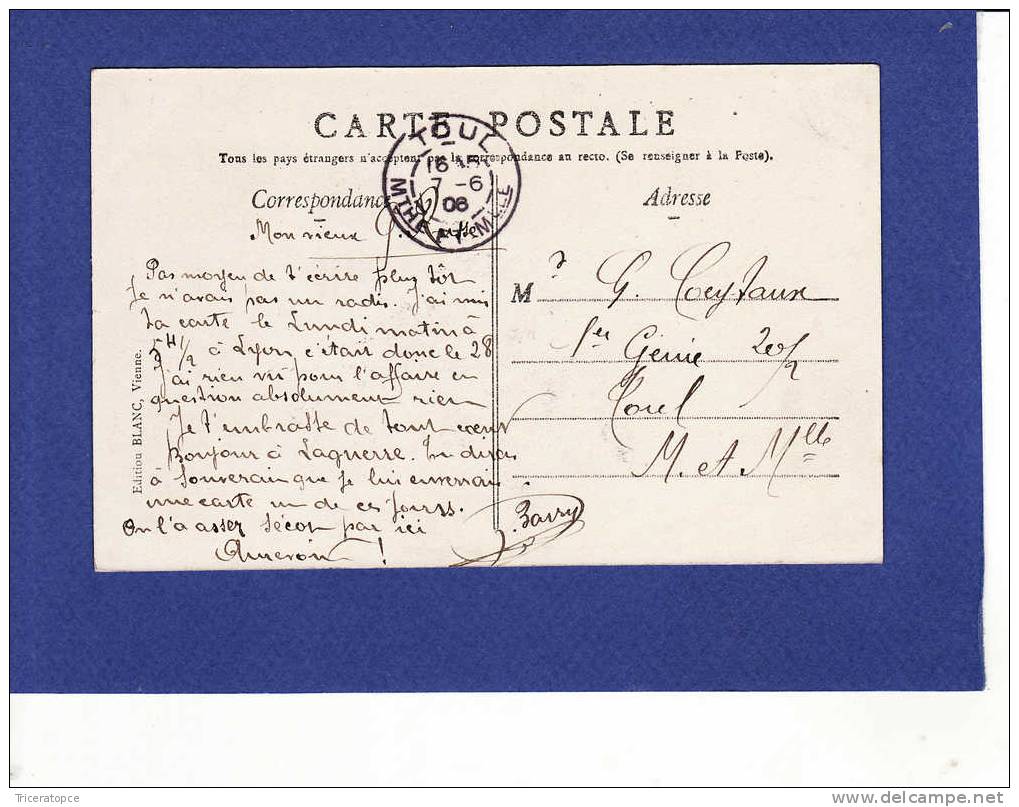 CARTE POSTALE
Tous les pays étrangers n'acceptent pas la correspondance au recto. (Se renseigner à la Poste).
TOUL
16
7 - 6
06
MTHE ET MLLE
Correspondance
Mon vieux G.
Pas moyen de t'écrire plus tôt
Je n'avais pas un radis. J'ai mis
ta carte le Lundi matin à
5 H 1/2 à Lyon, c'était donc le 28
J'ai rien vu pour l'affaire en
question absolument rien
Je t'embrasse de tout cœur
Bonjour à Laguerre. Tu diras
à Souverain que je lui enverrai
une carte un de ces jours.
On l'a assez sécot par ici
Aureroir !
Barry
Edition BLANC, Vienne.
Adresse
M r G. Coeytaux
1er Génie 20/2
Toul
M. et Mlle
Triceratopce
delcampe.net